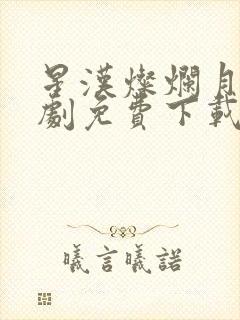 星漢燦爛月
劇免費下載
曦言曦諾